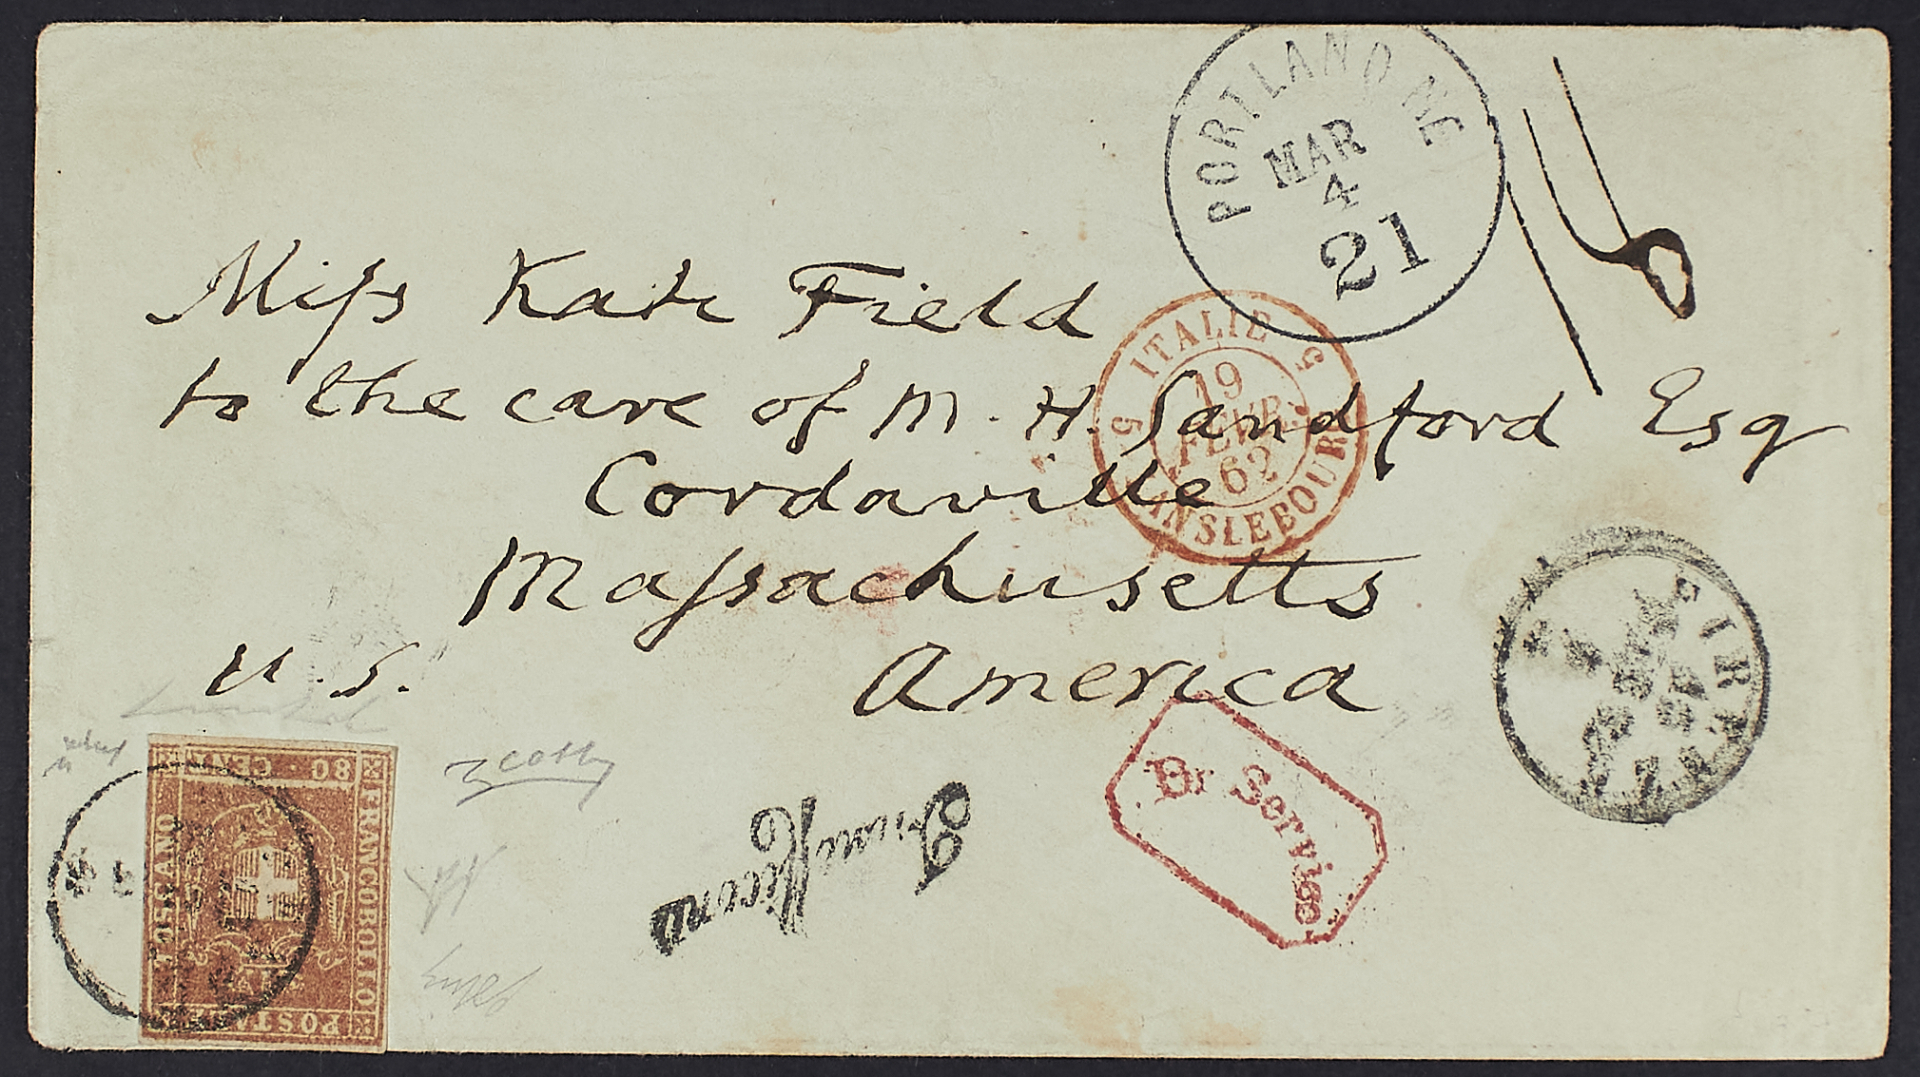 PORTLAND ME
MAR
4
21
Miss Kate Field
to the care of M. H. Sandford Esq
Cordaville
Massachusetts
U.S. America
5 ITALIE 5
19
FEVR
62
LANSLEBOURG
FIRENZE
80 CENT
FRANCOBOLLO
POSTALE
TOSCANO
Br Service.